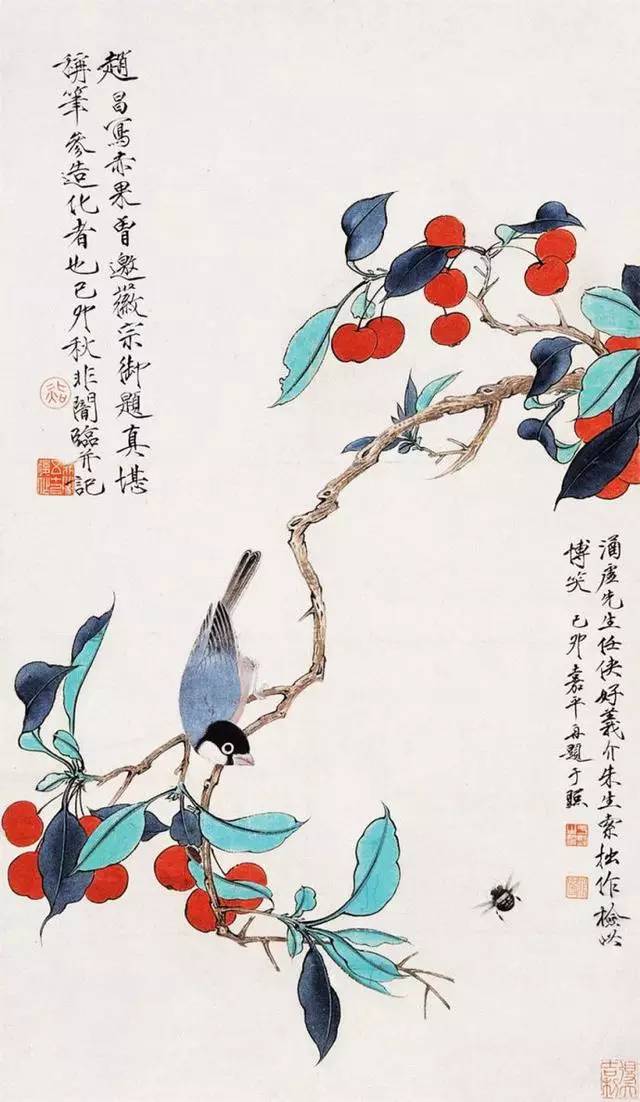 趙昌寫赤果曾邀徽宗御題真堪
稱筆參造化者也己卯秋非闇臨并記
涌虛先生任俠好義介朱生索拙作檢此
博笑己卯嘉平再題于照